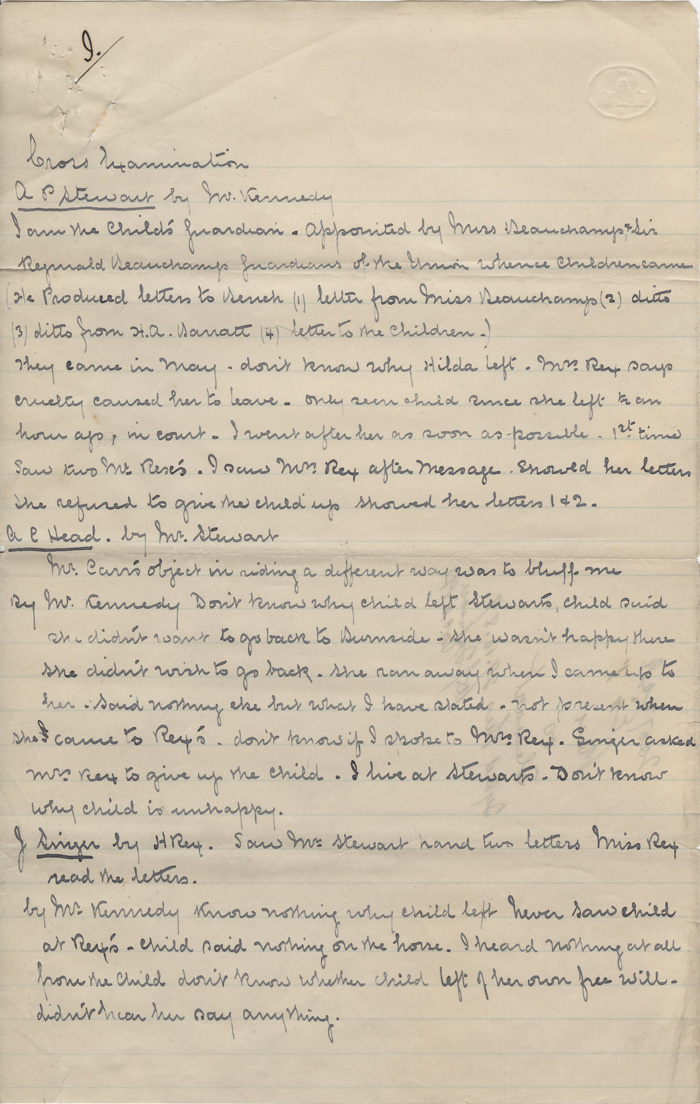 I.
Cross Examination
A P Stewart by Mr. Kennedy
I am the Child's Guardian - Appointed by Miss Beauchamp, & Sir
Reginald Beauchamp Guardians of the Union whence Children came
(He Produced letters to Bench (1) letter from Miss Beauchamp (2) ditto
(3) ditto from H.A. Barratt (4) letter to the Children.)
They came in May - don't know why Hilda left - Mrs. Rex says
cruelty caused her to leave - only seen child since she left ½ an
hour ago, in court. - I went after her as soon as possible. 1st. time
Saw two Mr. Rex's. I saw Mrs Rex after Message. Showed her letters
She refused to give the child up showed her letters 1 & 2.
A C Head. by Mr. Stewart
Mr. Carr's object in riding a different way was to bluff me
By Mr. Kennedy Don't know why child left Stewarts, child said
she didn't want to go back to Burnside - she wasn't happy there
She didn't wish to go back. She ran away when I came up to
her - Said nothing else but what I have stated. - not present when
she came to Rex's. don't know if I spoke to Mrs. Rex. Singer asked
Mrs. Rex to give up the child. I live at Stewarts. Don't know
why child is unhappy.
J Singer by H Rex. Saw Mr. Stewart hand two letters Miss Rex
read the letters.
by Mr. Kennedy Know nothing why child left Never saw child
at Rex's - child said nothing on the horse. I heard nothing at all
from the child don't know whether child left of her own free will -
didn't hear her say anything.